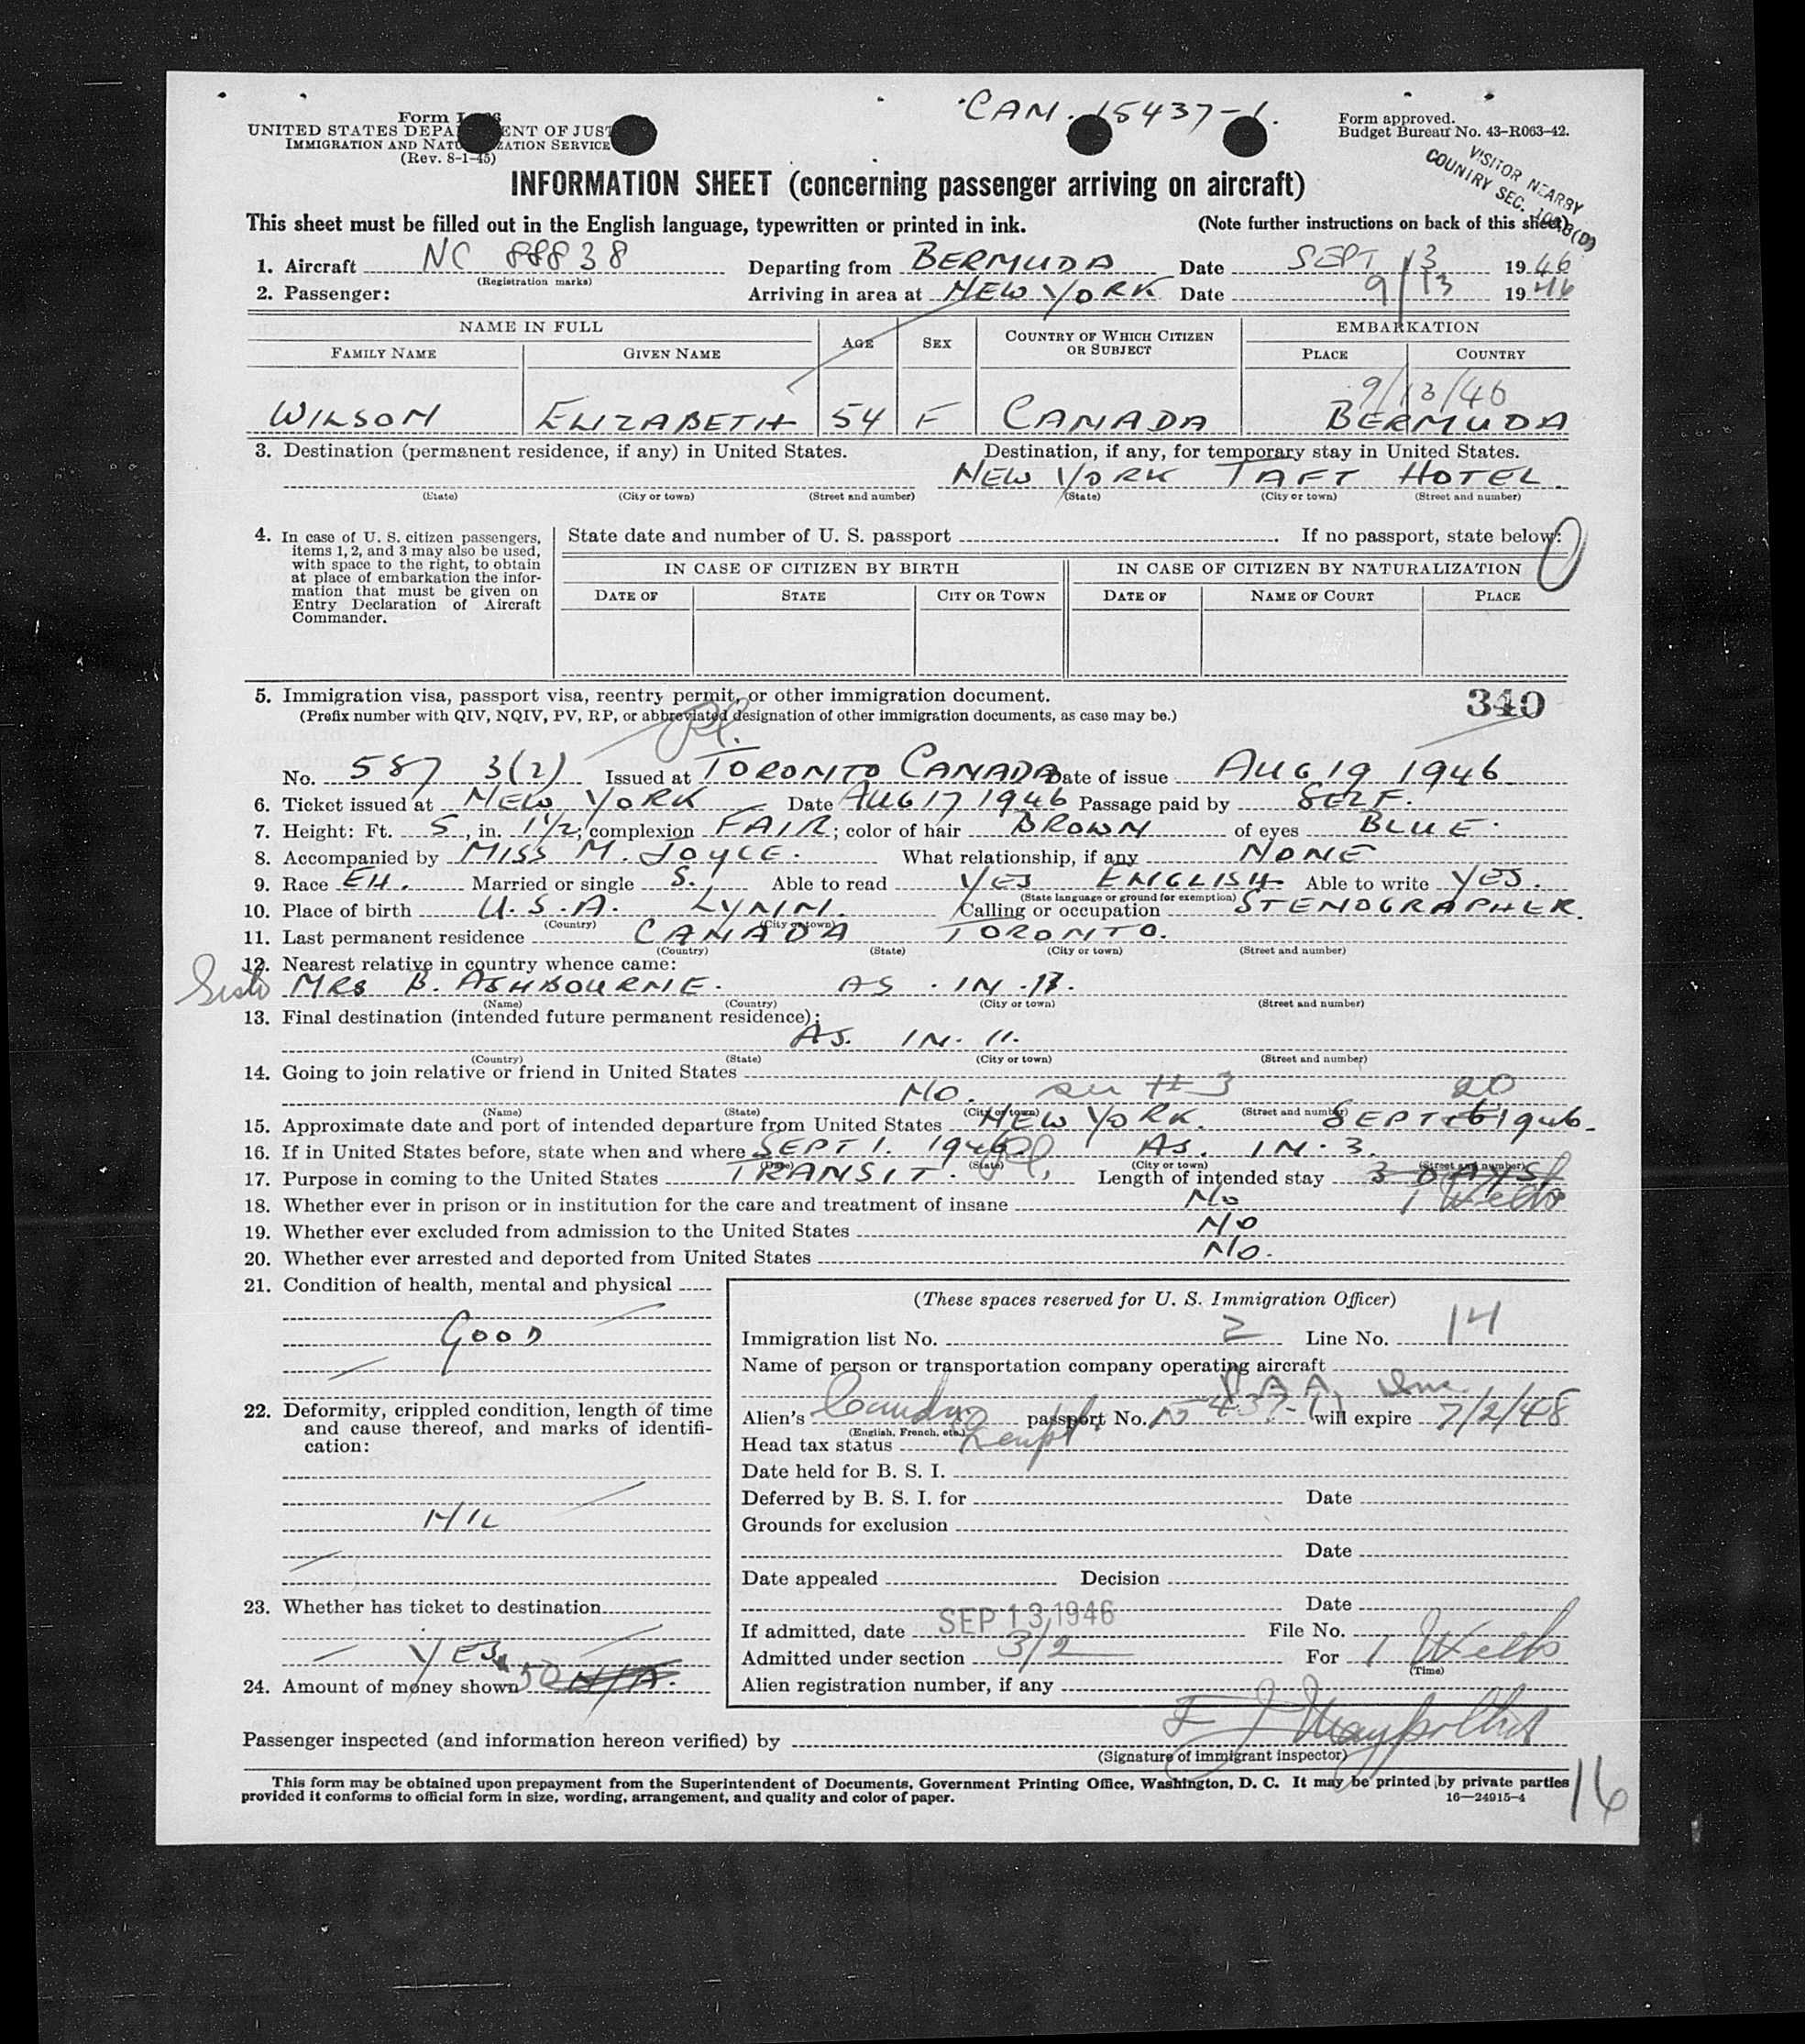 CAN. 15437-1.
Form I
UNITED STATES DEPA ENT OF JUST
IMMIGRATION AND NATU ZATION SERVICE
(Rev. 8-1-45)
Form approved.
Budget Bureau No. 43-R063-42.
VISITOR NEARBY
COUNTRY SEC.
INFORMATION SHEET (concerning passenger arriving on aircraft)
This sheet must be filled out in the English language, typewritten or printed in ink. (Note further instructions on back of this sheet)
1. Aircraft NC 88838 Departing from BERMUDA Date SEPT 13 1946
(Registration marks)
2. Passenger: Arriving in area at NEW YORK Date 9/13 1946
NAME IN FULL AGE SEX COUNTRY OF WHICH CITIZEN OR SUBJECT EMBARKATION
FAMILY NAME GIVEN NAME PLACE COUNTRY
9/13/46
WILSON ELIZABETH 54 F CANADA BERMUDA
3. Destination (permanent residence, if any) in United States. Destination, if any, for temporary stay in United States.
NEW YORK TAFT HOTEL.
(State) (City or town) (Street and number) (State) (City or town) (Street and number)
4. In case of U. S. citizen passengers, items 1, 2, and 3 may also be used, with space to the right, to obtain at place of embarkation the information that must be given on Entry Declaration of Aircraft Commander.
State date and number of U. S. passport . If no passport, state below:
IN CASE OF CITIZEN BY BIRTH IN CASE OF CITIZEN BY NATURALIZATION
DATE OF STATE CITY OR TOWN DATE OF NAME OF COURT PLACE
5. Immigration visa, passport visa, reentry permit, or other immigration document. 340
(Prefix number with QIV, NQIV, PV, RP, or abbreviated designation of other immigration documents, as case may be.)
No. 587 3(2) Issued at TORONTO CANADA Date of issue AUG 19 1946
6. Ticket issued at NEW YORK Date AUG 17 1946 Passage paid by SELF.
7. Height: Ft. 5, in. 1 1/2; complexion FAIR; color of hair BROWN of eyes BLUE.
8. Accompanied by MISS M. JOYCE. What relationship, if any NONE
9. Race EH. Married or single S. Able to read YES ENGLISH Able to write YES.
(State language or ground for exemption)
10. Place of birth U.S.A. LYNN. Calling or occupation STENOGRAPHER.
(Country) (City or town)
11. Last permanent residence CANADA TORONTO.
(Country) (State) (City or town) (Street and number)
12. Nearest relative in country whence came:
MRS B. ASHBOURNE. AS . IN .
(Name) (Country) (City or town) (Street and number)
13. Final destination (intended future permanent residence):
AS. IN. 11.
(Country) (State) (City or town) (Street and number)
14. Going to join relative or friend in United States
NO. see # 3 20
(Name) (State) (City or town) (Street and number)
15. Approximate date and port of intended departure from United States NEW YORK. SEPT 1946.
16. If in United States before, state when and where SEPT 1. 1946 AS. IN. 3.
(Date) (State) (City or town) (Street and number)
17. Purpose in coming to the United States TRANSIT. Length of intended stay 3 DAYS
18. Whether ever in prison or in institution for the care and treatment of insane NO
19. Whether ever excluded from admission to the United States NO
20. Whether ever arrested and deported from United States NO.
21. Condition of health, mental and physical
GOOD
22. Deformity, crippled condition, length of time and cause thereof, and marks of identification:
NIL
23. Whether has ticket to destination
YES
24. Amount of money shown 50 N/A.
(These spaces reserved for U. S. Immigration Officer)
Immigration list No. 2 Line No. 14
Name of person or transportation company operating aircraft
P A A Inc.
Alien's passport No. 15437-1 will expire 7/2/48
(English, French, etc.)
Head tax status
Date held for B. S. I.
Deferred by B. S. I. for Date
Grounds for exclusion
Date
Date appealed Decision
Date
If admitted, date SEP 13 1946 File No.
Admitted under section 3/2 For 1
(Time)
Alien registration number, if any
Passenger inspected (and information hereon verified) by
(Signature of immigrant inspector)
This form may be obtained upon prepayment from the Superintendent of Documents, Government Printing Office, Washington, D. C. It may be printed by private parties
provided it conforms to official form in size, wording, arrangement, and quality and color of paper. 16—24915-4
16